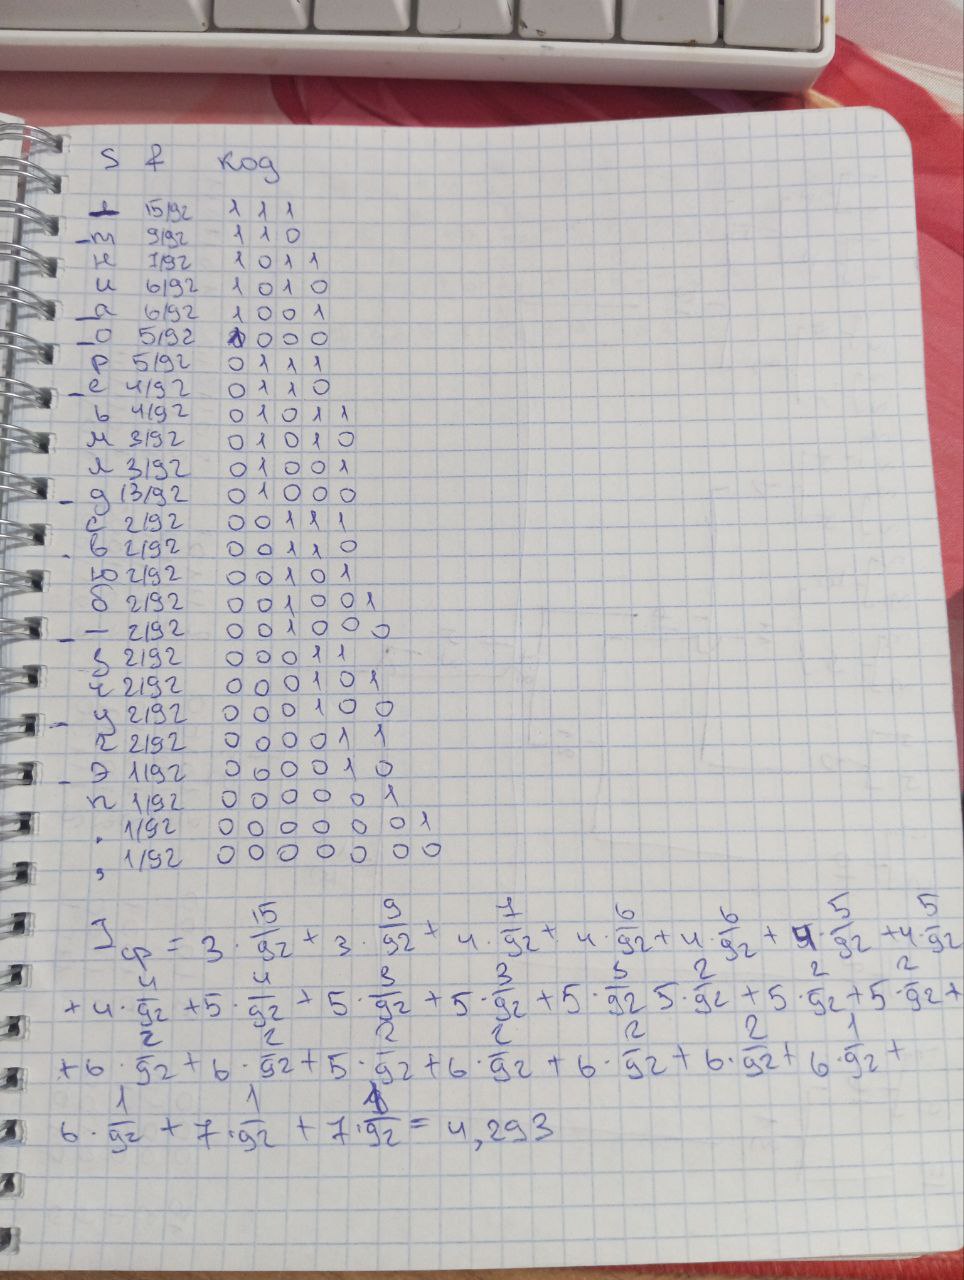 S f код
15/92 1 1 1
т 9/92 1 1 0
н 7/92 1 0 1 1
и 6/92 1 0 1 0
а 6/92 1 0 0 1
о 5/92 1 0 0 0
р 5/92 0 1 1 1
е 4/92 0 1 1 0
ь 4/92 0 1 0 1 1
м 3/92 0 1 0 1 0
л 3/92 0 1 0 0 1
д 3/92 0 1 0 0 0
с 2/92 0 0 1 1 1
в 2/92 0 0 1 1 0
ю 2/92 0 0 1 0 1
б 2/92 0 0 1 0 0 1
— 2/92 0 0 1 0 0 0
з 2/92 0 0 0 1 1
ч 2/92 0 0 0 1 0 1
у 2/92 0 0 0 1 0 0
2/92 0 0 0 0 1 1
э 1/92 0 0 0 0 1 0
п 1/92 0 0 0 0 0 1
. 1/92 0 0 0 0 0 0 1
, 1/92 0 0 0 0 0 0 0
Iср = 3 · 15/92 + 3 · 9/92 + 4 · 7/92 + 4 · 6/92 + 4 · 6/92 + 4 · 5/92 + 4 · 5/92
+ 4 · 4/92 + 5 · 4/92 + 5 · 3/92 + 5 · 3/92 + 5 · 3/92 5 · 2/92 + 5 · 2/92 + 5 · 2/92 +
+ 6 · 2/92 + 6 · 2/92 + 5 · 2/92 + 6 · 2/92 + 6 · 2/92 + 6 · 2/92 + 6 · 1/92 +
6 · 1/92 + 7 · 1/92 + 7 · 1/92 = 4,293